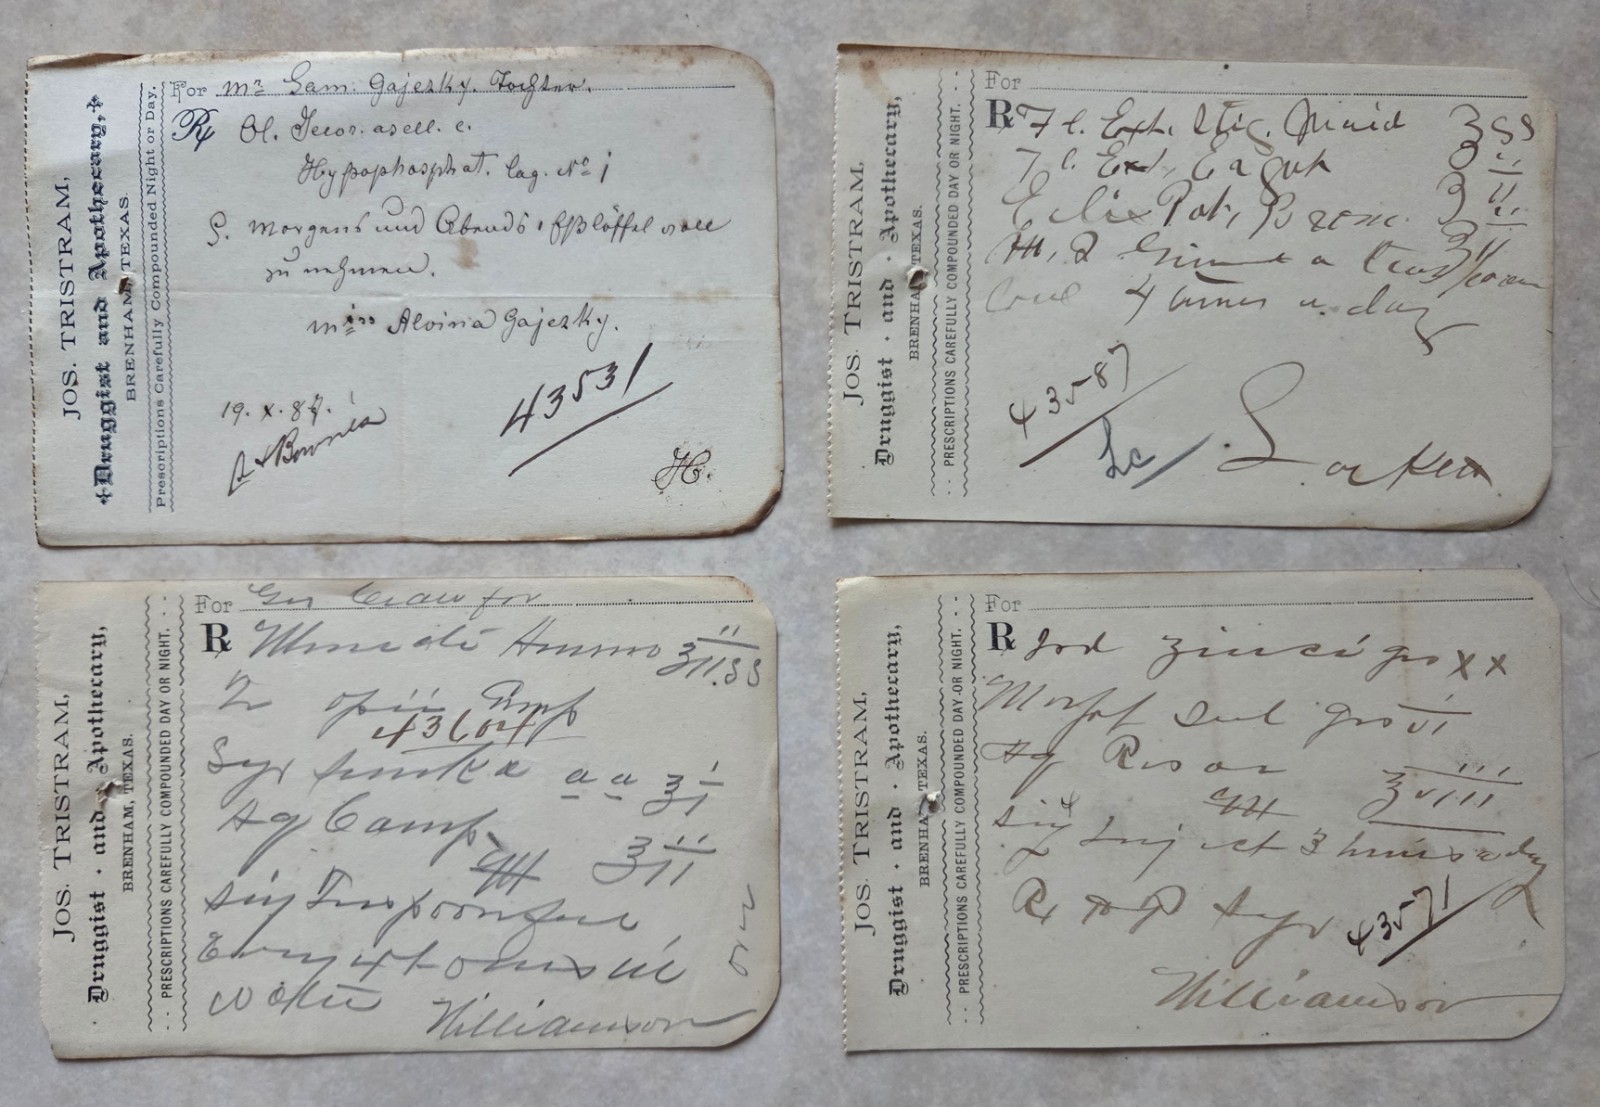 JOS. TRISTRAM,
Druggist and Apothecary,
BRENHAM, TEXAS.
Prescriptions Carefully Compounded Night or Day.
For Mr Sam. Gajezky. Tochter.
Rx Ol. Jecor. asell. c.
Hypophosphat. lag. No j
S. Morgens und Abends 1 Eßlöffel voll
zu nehmen.
Miss Alvina Gajezky.
19. X. 87.
43531
H.
JOS. TRISTRAM,
Druggist · and · Apothecary,
BRENHAM, TEXAS.
PRESCRIPTIONS CAREFULLY COMPOUNDED DAY OR NIGHT.
For
Rx Fl. Ext. Stig. Maid ʒss
Fl. Ext. Ergot ʒii
Elix Pot. Brom. ʒii
4 times a day
43587
Lc
Lockett
JOS. TRISTRAM,
Druggist · and · Apothecary,
BRENHAM, TEXAS.
PRESCRIPTIONS CAREFULLY COMPOUNDED DAY OR NIGHT.
For
Rx Muriate Ammo ʒii.ss
Tr opii Camp
43604
Syr Seneka aa ʒi
Aq Camp ʒii
Sig Teaspoonful
Every 4 hours in
water
over
Williamson
JOS. TRISTRAM,
Druggist · and · Apothecary,
BRENHAM, TEXAS.
PRESCRIPTIONS CAREFULLY COMPOUNDED DAY OR NIGHT.
For
Rx Iod Zinci grs xx
Morph Sul grs vi
Aq Rosar ʒviii
Sig Inject 3 times a day
Rx Syr
43571
Williamson